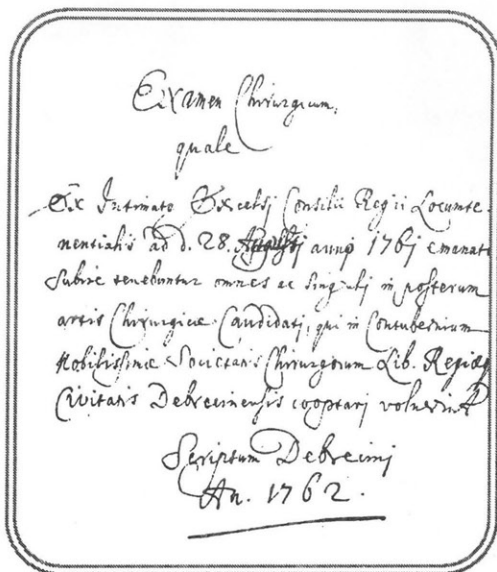 Examen Chirurgicum,
quale
Ex Intimato Excelsj Consilii Regii Locumte-
nentialis ad d. 28. Augustj annj 1761 emanato
Subire tenebuntur omnes ac Singulj in posterum
artis Chyrurgicae Candidatj, qui in Contubernium
Nobilissimae Societatis Chirurgorum Lib. Regiaeq
Civitatis Debrecinensis cooptarj voluerint
Scriptum Debrecinj
An. 1762.